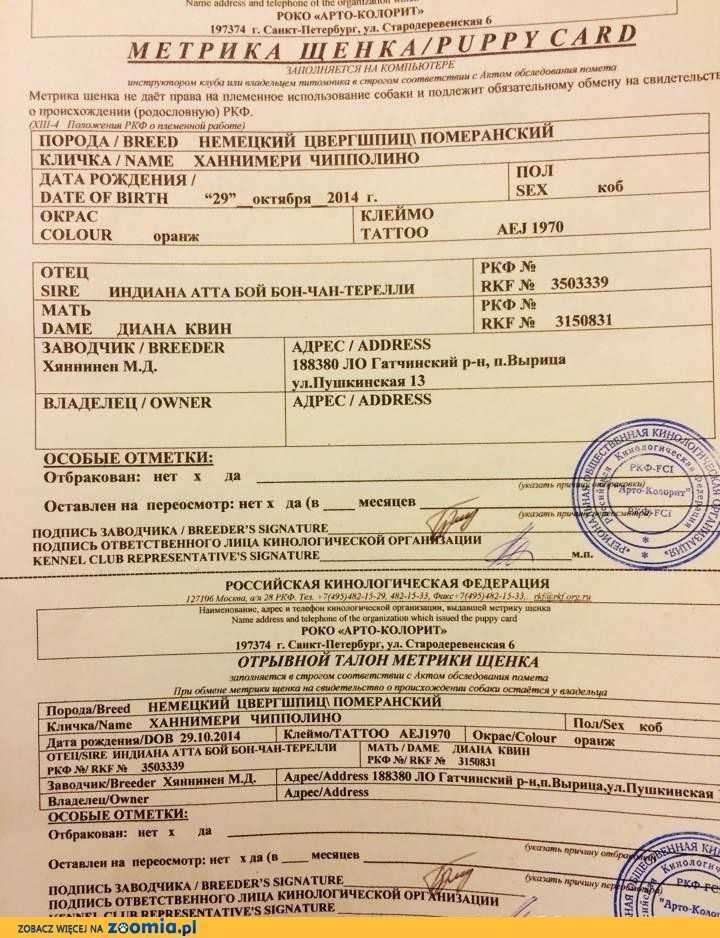 Name address and telephone of the organization which
РОКО «АРТО-КОЛОРИТ»
197374 г. Санкт-Петербург, ул. Стародеревенская 6
МЕТРИКА ЩЕНКА/PUPPY CARD
ЗАПОЛНЯЕТСЯ НА КОМПЬЮТЕРЕ
инструктором клуба или владельцем питомника в строгом соответствии с Актом обследования помета
Метрика щенка не даёт права на племенное использование собаки и подлежит обязательному обмену на свидетельств
о происхождении (родословную) РКФ.
(XIII-4 Положения РКФ о племенной работе)
ПОРОДА / BREED НЕМЕЦКИЙ ЦВЕРГШПИЦ\ ПОМЕРАНСКИЙ
КЛИЧКА / NAME ХАННИМЕРИ ЧИППОЛИНО
ДАТА РОЖДЕНИЯ /
DATE OF BIRTH “29”__октября__2014 г.
ПОЛ
SEX коб
ОКРАС
COLOUR оранж
КЛЕЙМО
TATTOO AEJ 1970
ОТЕЦ
SIRE ИНДИАНА АТТА БОЙ БОН-ЧАН-ТЕРЕЛЛИ
РКФ №
RKF № 3503339
МАТЬ
DAME ДИАНА КВИН
РКФ №
RKF № 3150831
ЗАВОДЧИК / BREEDER
Хяннинен М.Д.
АДРЕС / ADDRESS
188380 ЛО Гатчинский р-н, п.Вырица
ул.Пушкинская 13
ВЛАДЕЛЕЦ / OWNER
АДРЕС / ADDRESS
ОСОБЫЕ ОТМЕТКИ:
Отбракован: нет х да
(указать причину отбраковки)
Оставлен на переосмотр: нет х да (в ___ месяцев
(указать причину переосмотра)
ПОДПИСЬ ЗАВОДЧИКА / BREEDER'S SIGNATURE
ПОДПИСЬ ОТВЕТСТВЕННОГО ЛИЦА КИНОЛОГИЧЕСКОЙ ОРГАНИЗАЦИИ
KENNEL CLUB REPRESENTATIVE'S SIGNATURE
м.п.
РКФ-FCI
"Арто-Колорит"
РКФ-FCI
РОССИЙСКАЯ КИНОЛОГИЧЕСКАЯ ФЕДЕРАЦИЯ
127106 Москва, а/я 28 РКФ. Тел. +7(495)482-15-29, 482-15-33, Факс+7(495)482-15-33,. rkf@rkf.org.ru
Наименование, адрес и телефон кинологической организации, выдавшей метрику щенка
Name address and telephone of the organization which issued the puppy card
РОКО «АРТО-КОЛОРИТ»
197374 г. Санкт-Петербург, ул. Стародеревенская 6
ОТРЫВНОЙ ТАЛОН МЕТРИКИ ЩЕНКА
заполняется в строгом соответствии с Актом обследования помета
При обмене метрики щенка на свидетельство о происхождении собаки остаётся у владельца
Порода/Breed НЕМЕЦКИЙ ЦВЕРГШПИЦ\ ПОМЕРАНСКИЙ
Кличка/Name ХАННИМЕРИ ЧИППОЛИНО
Пол/Sex коб
Дата рождения/DOB 29.10.2014
Клеймо/TATTOO AEJ1970
Окрас/Colour оранж
ОТЕЦ/SIRE ИНДИАНА АТТА БОЙ БОН-ЧАН-ТЕРЕЛЛИ
РКФ №/ RKF № 3503339
МАТЬ / DAME ДИАНА КВИН
РКФ №/ RKF № 3150831
Заводчик/Breeder Хяннинен М.Д.
Адрес/Address 188380 ЛО Гатчинский р-н,п.Вырица,ул.Пушкинская 1
Владелец/Owner
Адрес/Address
ОСОБЫЕ ОТМЕТКИ:
Отбракован: нет х да
(указать причину отбрак
Оставлен на переосмотр: нет х да (в ___ месяцев
(указать причину переосмотра)
ПОДПИСЬ ЗАВОДЧИКА / BREEDER'S SIGNATURE
ПОДПИСЬ ОТВЕТСТВЕННОГО ЛИЦА КИНОЛОГИЧЕСКОЙ ОРГАНИЗАЦИИ
KENNEL CLUB REPRESENTATIVE'S SIGNATURE
РКФ-FCI
"Арто-Колор
ZOBACZ WIĘCEJ NA zoomia.pl